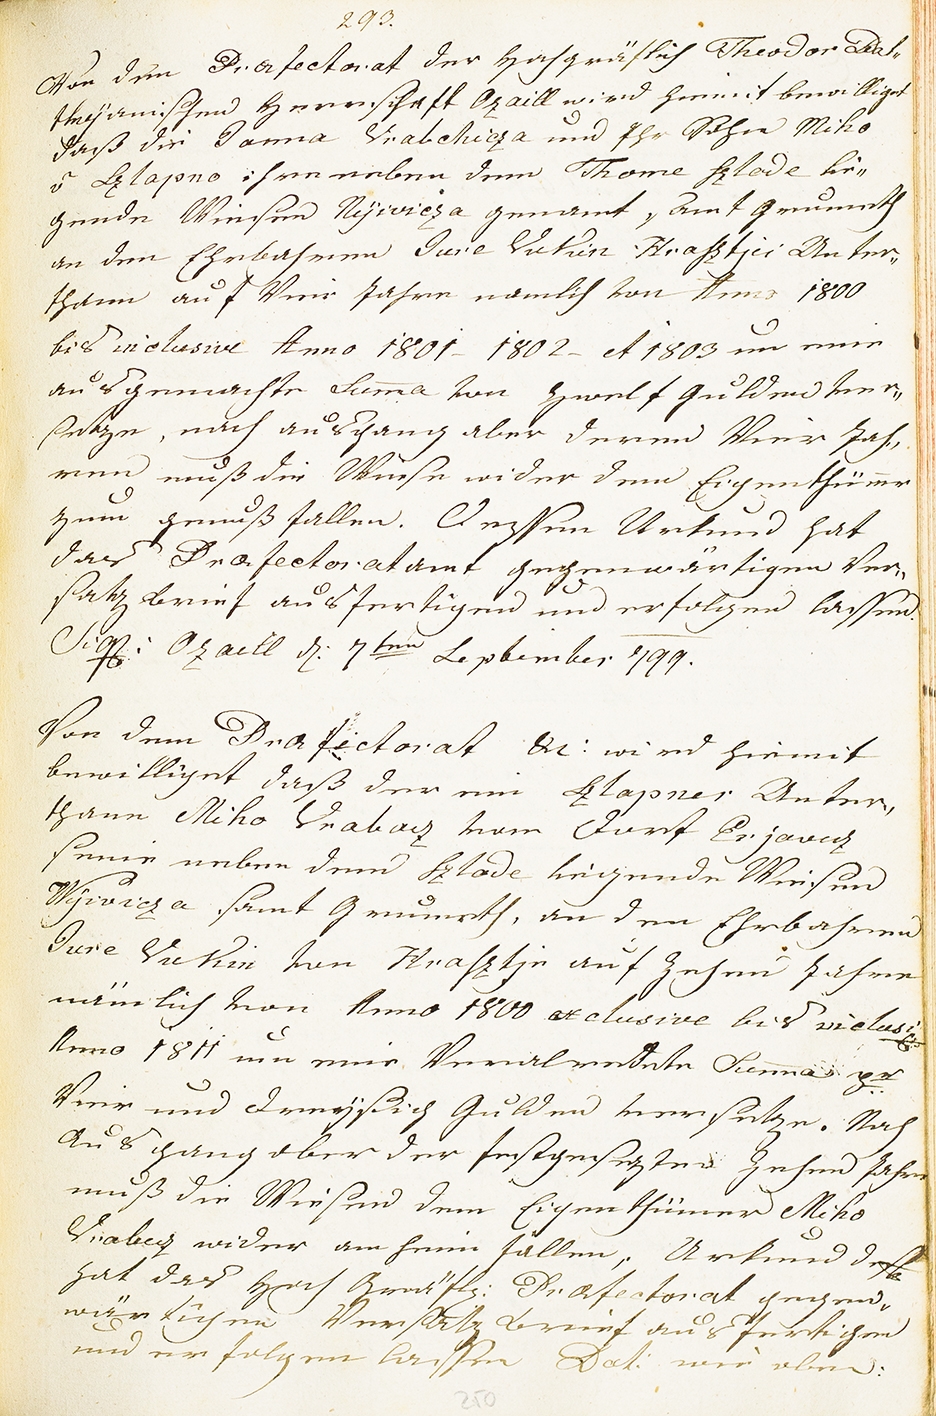 293.
Von dem Præfectorat der Hochgräflich Theodor Bat„
thyanischen Herrschaft Ozaill wird hiemit bewilliget
daß die Janna Vrabchicza und Ihr Sohn Miho
v Sztapno ihre neben dem Thome Sztode lie„
gende Wiesen Nyivicza genannt, samt Grumeth
an den Ehrbahren Jure Vukin Hrasztjei Unter„
thann auf Vier Jahre nemlich von Anno 1800
bis inclusive Anno 1801 - 1802 - et 1803 um eine
ausgemachte Suma von zwelf Gulden ver„
setze, nach ausgang aber deren Vier Jah„
ren muß die Wiese wider dem Eigenthümer
zum genuß fallen. Dessen Urkund hat
das Præfectoratamt gegenwärtigen Ver„
satz Brief ausfertigen und erfolgen lassen.
Sig: Ozaill d: 7ten September 799.
Von dem Præfectorat &c: wird hiemit
bewilliget daß der ein Sztapner Unter„
thann Miho Vrabacz vom Dorf Erjavcz
seine neben dem Sztode liegende Wiesen
Nyivicza samt Grumeth, an den Ehrbahren
Jure Vukin von Hrasztje auf Zehen Jahre
nämlich von Anno 1800 exclusive bis inclusive
Anno 1811 um eine Verabredete Suma pr
Vier und dreyßig Gulden versetze. Nach
Ausgang aber der festgesezten Zehen Jahre
muß die Wiesen dem Eigenthümer Miho
Vrabecz wider anheim fallen, Urkund dess
hat das Hoch Gräfl: Præfectorat gegen„
wärtigen Versatz Brief ausfertigen
und erfolgen lassen Dat: wie oben:
250